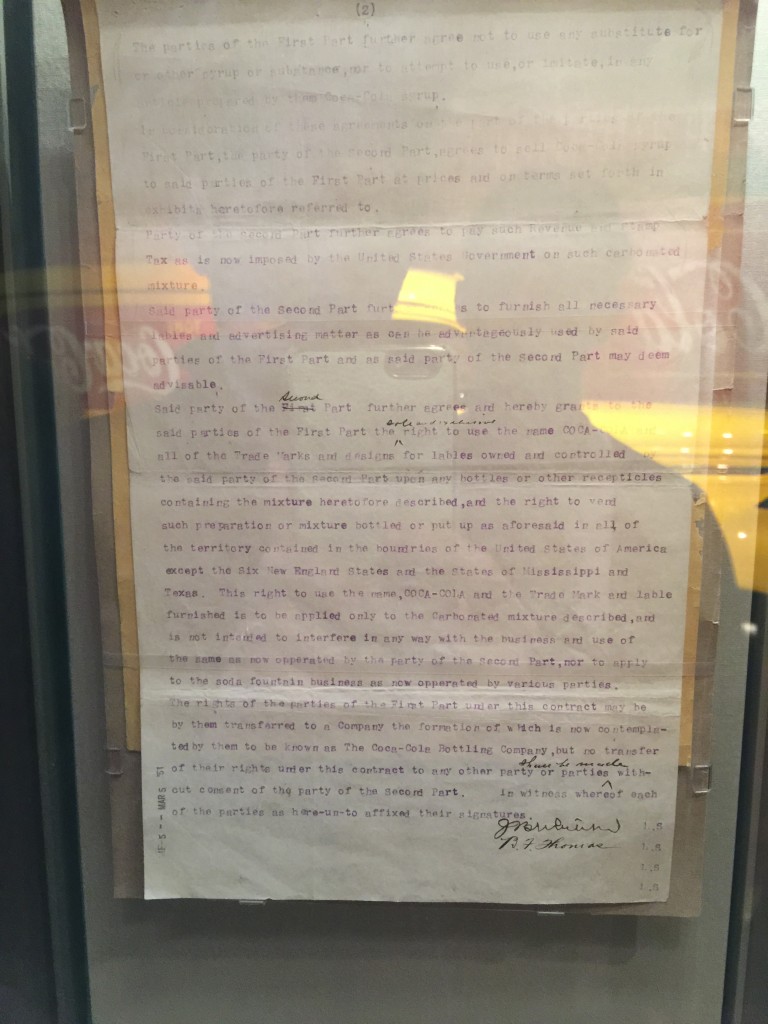 (2)
The parties of the First Part further agree not to use any substitute for
or other syrup or substance,nor to attempt to use,or imitate,in any
prepared by them Coca-Cola syrup.
In consideration of these agreements on the part of the parties of the
First Part,the party of the Second Part,agrees to sell Coca-Cola syrup
to said parties of the First Part at prices and on terms set forth in
exhibits heretofore referred to.
Party of the second Part further agrees to pay such Revenue and Stamp
Tax as is now imposed by the United States Government on such carbonated
mixture.
Said party of the Second Part s to furnish all necessary
lables and advertising matter as can be advantageously used by said
parties of the First Part and as said party of the Second Part may deem
advisable.
Second
Said party of the First Part further agrees and hereby grants to the
sole and exclusive
said parties of the First Part the right to use the name COCA-
all of the Trade Marks and designs for lables owned and controlled by
the said party of the Second Part upon any bottles or other recepticles
containing the mixture heretofore described,and the right to vend
such preparation or mixture bottled or put up as aforesaid in all of
the territory contained in the boundries of the United States of America
except the Six New England States and the States of Mississippi and
Texas. This right to use the name,COCA-COLA and the Trade Mark and lable
furnished is to be applied only to the Carbonated mixture described,and
is not intended to interfere in any way with the business and use of
the same as now opperated by the party of the Second Part,nor to apply
to the soda fountain business as now opperated by various parties.
The rights of the parties of the First Part under this contract may be
by them transferred to a Company the formation of which is now contempla-
ted by them to be known as The Coca-Cola Bottling Company,but no transfer
shall be made
of their rights under this contract to any other party or parties with-
out consent of the party of the Second Part. In witness whereof each
of the parties as here-un-to affixed their signatures.
L.S
B.F. Thomas L.S
L.S
L.S
MAR 5 '51